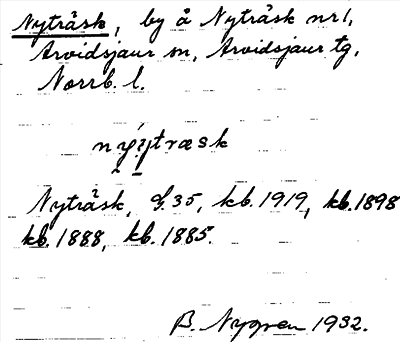 Nyträsk, by å Nyträsk nr 1,
Arvidsjaur sn, Arvidsjaur tg,
Norrb. l.
Nyträsk, kb. 1919, kb. 1898
kb. 1888, kb. 1885.
B. Nygren 1932.